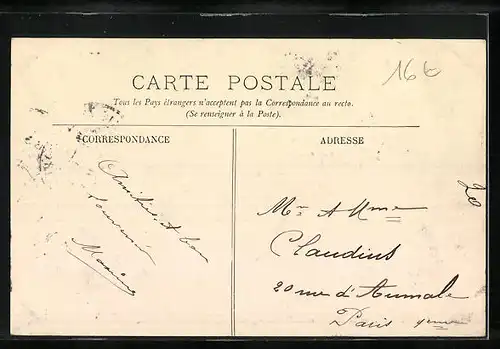 16 €
CARTE POSTALE
Tous les Pays étrangers n'acceptent pas la Correspondance au recto.
(Se renseigner à la Poste).
CORRESPONDANCE
Amitiés et bon
souvenir
ADRESSE
20
Mr & Mme
Claudius
20 rue d'Aumale
Paris 9eme